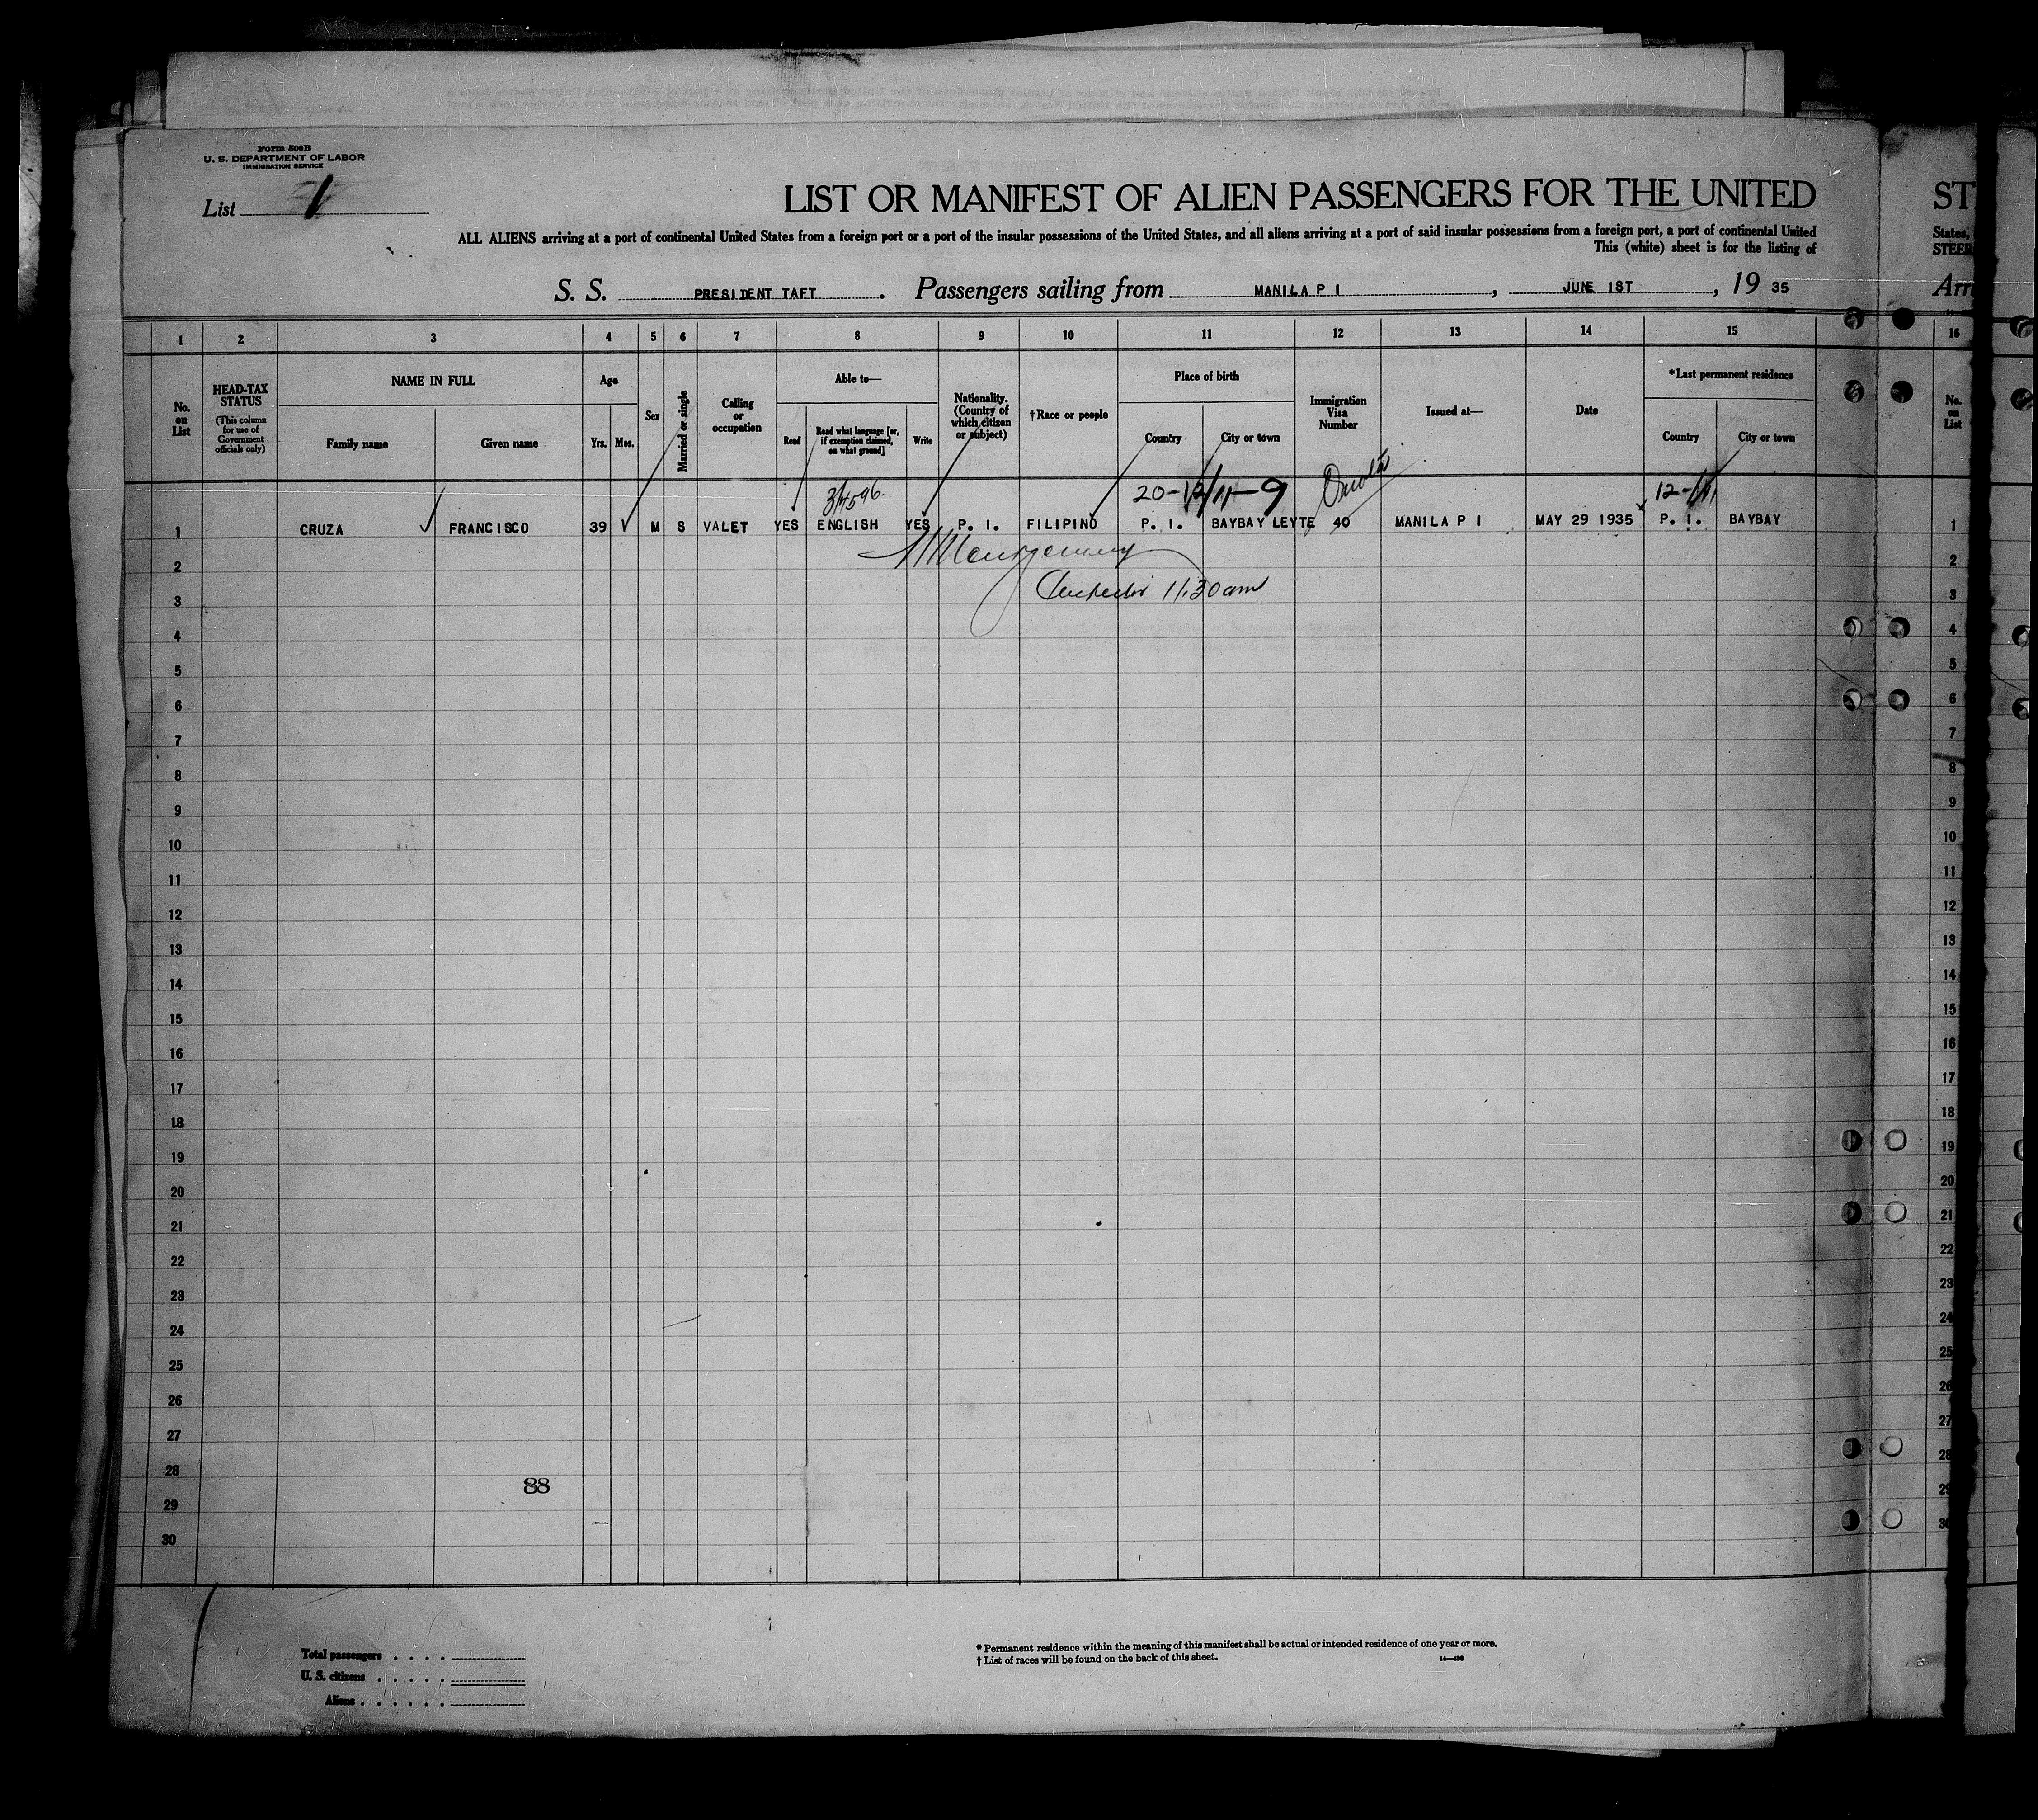 Form 500B
U. S. DEPARTMENT OF LABOR
IMMIGRATION SERVICE
List 1
LIST OR MANIFEST OF ALIEN PASSENGERS FOR THE UNITED ST
ALL ALIENS arriving at a port of continental United States from a foreign port or a port of the insular possessions of the United States, and all aliens arriving at a port of said insular possessions from a foreign port, a port of continental United States,
This (white) sheet is for the listing of STEER
S. S. PRESIDENT TAFT . Passengers sailing from MANILA P I , JUNE 1ST , 19 35 Arri
1 2 3 4 5 6 7 8 9 10 11 12 13 14 15 16
No. on List
HEAD-TAX STATUS
(This column for use of Government officials only)
NAME IN FULL
Family name Given name
Age
Yrs. Mos.
Sex
Married or single
Calling or occupation
Able to—
Read
Read what language [or, if exemption claimed, on what ground]
Write
Nationality. (Country of which citizen or subject)
†Race or people
Place of birth
Country City or town
Immigration Visa Number
Issued at—
Date
*Last permanent residence
Country City or town
No. on List
20- 9 12-
1 CRUZA FRANCISCO 39 M S VALET YES ENGLISH YES P. I. FILIPINO P. I. BAYBAY LEYTE 40 MANILA P I MAY 29 1935 P. I. BAYBAY 1
Montgomery
2 2
11:30 am
3 3
4 4
5 5
6 6
7 7
8 8
9 9
10 10
11 11
12 12
13 13
14 14
15 15
16 16
17 17
18 18
19 19
20 20
21 21
22 22
23 23
24 24
25 25
26 26
27 27
28 28
88
29 29
30 30
Total passengers . . . .
U. S. citizens . . . . .
Aliens . . . . . .
* Permanent residence within the meaning of this manifest shall be actual or intended residence of one year or more.
† List of races will be found on the back of this sheet.